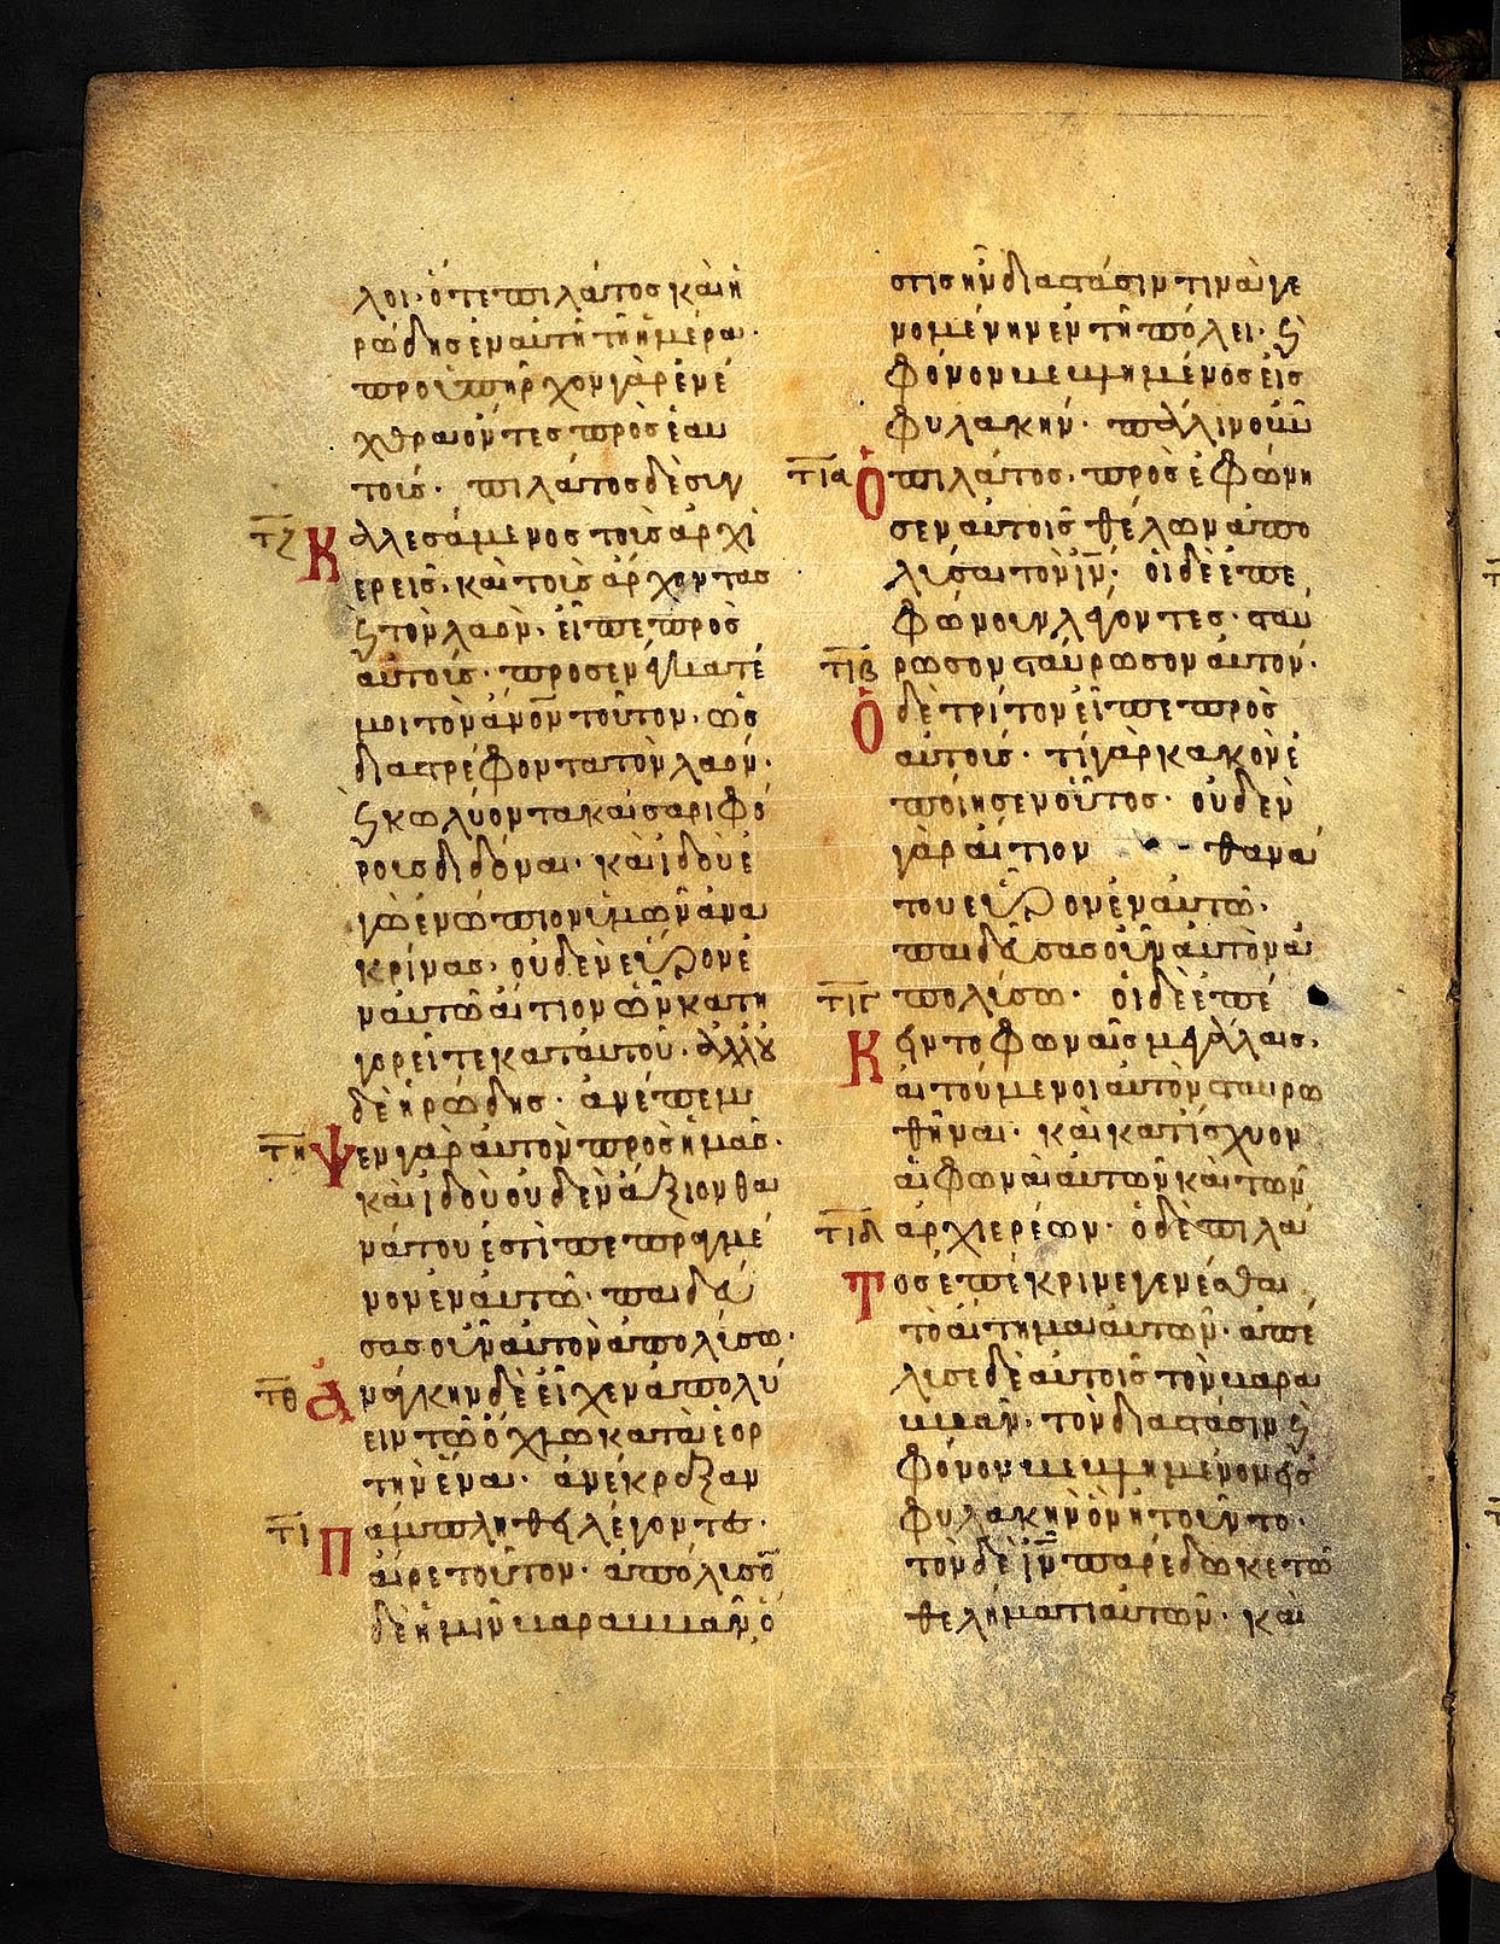 λοι· ὅτε πιλάτος καὶ ἡ
ρώδης ἐν αὐτῆ τῆ ἡμέρα·
προϋπῆρχον γὰρ ἐν ἔ
χθρα ὄντες πρὸς ἑαυ
τούς· πιλάτος δὲ συγ
τζ Καλεσάμενος τοὺς ἀρχι
ερεῖς· καὶ τοὺς ἄρχοντας
ϛ τὸν λαὸν· εἶπε πρὸς
αὐτούς· προσενέγκατέ
μοι τὸν ἄνον τοῦτον· ὡς
διαστρέφοντα τὸν λαόν·
ϛ κωλύοντα καίσαρι φό
ρους διδόναι· καὶ ἰδοὺ ἐ
γὼ ἐνώπιον ὑμῶν ἀνα
κρίνας· οὐδὲν εὗρον ἐ
ν αὐτῶ αἴτιον ὧν κατη
γορεῖτε κατ αὐτοῦ· ἀλλ οὐ
δὲ ἡρώδης· ἀνέπεμ
τη Ψεν γὰρ αὐτὸν πρὸς ἡμᾶς·
καὶ ἰδοὺ οὐδὲν ἄξιον θα
νάτου ἐστὶ πεπραγμέ
νον ἐν αὐτῶ· παιδεύ
σας οὖν αὐτὸν ἀπολύσω·
τθ Ἀνάγκην δὲ εἶχεν ἀπολύ
ειν τῶ ὄχλω κατὰ ἑορ
τὴν ἕνα· ἀνέκραξαν
τι Παμπληθεὶ λέγοντες·
αἶρε τοῦτον· ἀπόλυσον
δὲ ἡμῖν βαραββᾶν, ὁ
στις ἦν διὰ στάσιν τινὰ γε
νομένην ἐν τῆ πόλει· ϛ
φόνον βεβλημένος εἰς
φυλακήν· πάλιν οὖν
τια Ὁ πιλάτος· προσεφώνη
σεν αὐτοῖς θέλων ἀπο
λῦσαι τὸν ἰν· οἱ δὲ ἐπε
φώνουν λέγοντες· σταύ
τιβ ρωσον σταύρωσον αὐτόν·
Ὁ δὲ τρίτον εἶπε πρὸς
αὐτούς· τί γὰρ κακὸν ἐ
ποίησεν οὗτος· οὐδὲν
γὰρ αἴτιον θανά
του εὗρον ἐν αὐτῶ·
παιδεύσας οὖν αὐτὸν ἀ
τιγ πολύσω· οἱ δὲ ἐπέ
Κειντο φωναῖς μεγάλαις·
αἰτούμενοι αὐτὸν σταυρω
θῆναι· καὶ κατίσχυον
αἱ φωναὶ αὐτῶν καὶ τῶν
τιδ ἀρχιερέων· ὁ δὲ πιλά
Τος ἐπέκρινε γενέσθαι
τὸ αἴτημα αὐτῶν· ἀπέ
λυσε δὲ αὐτοῖς τὸν βαρα
ββᾶν· τὸν διὰ στάσιν ϛ
φόνον βεβλημένον εἰς
φυλακὴν ὃν ἠτοῦντο·
τὸν δὲ ἰν παρέδωκε τῶ
θελήματι αὐτῶν· καὶ